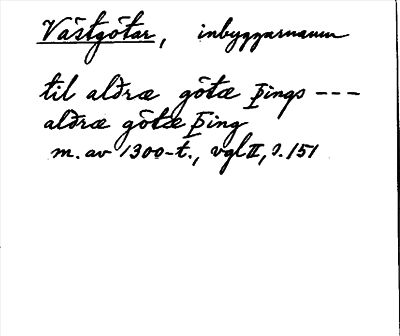 Västgötar, inbyggarnamn
til aldræ götæ þings ---
aldræ götæ þing
m. av 1300-t., vgl II, s. 151